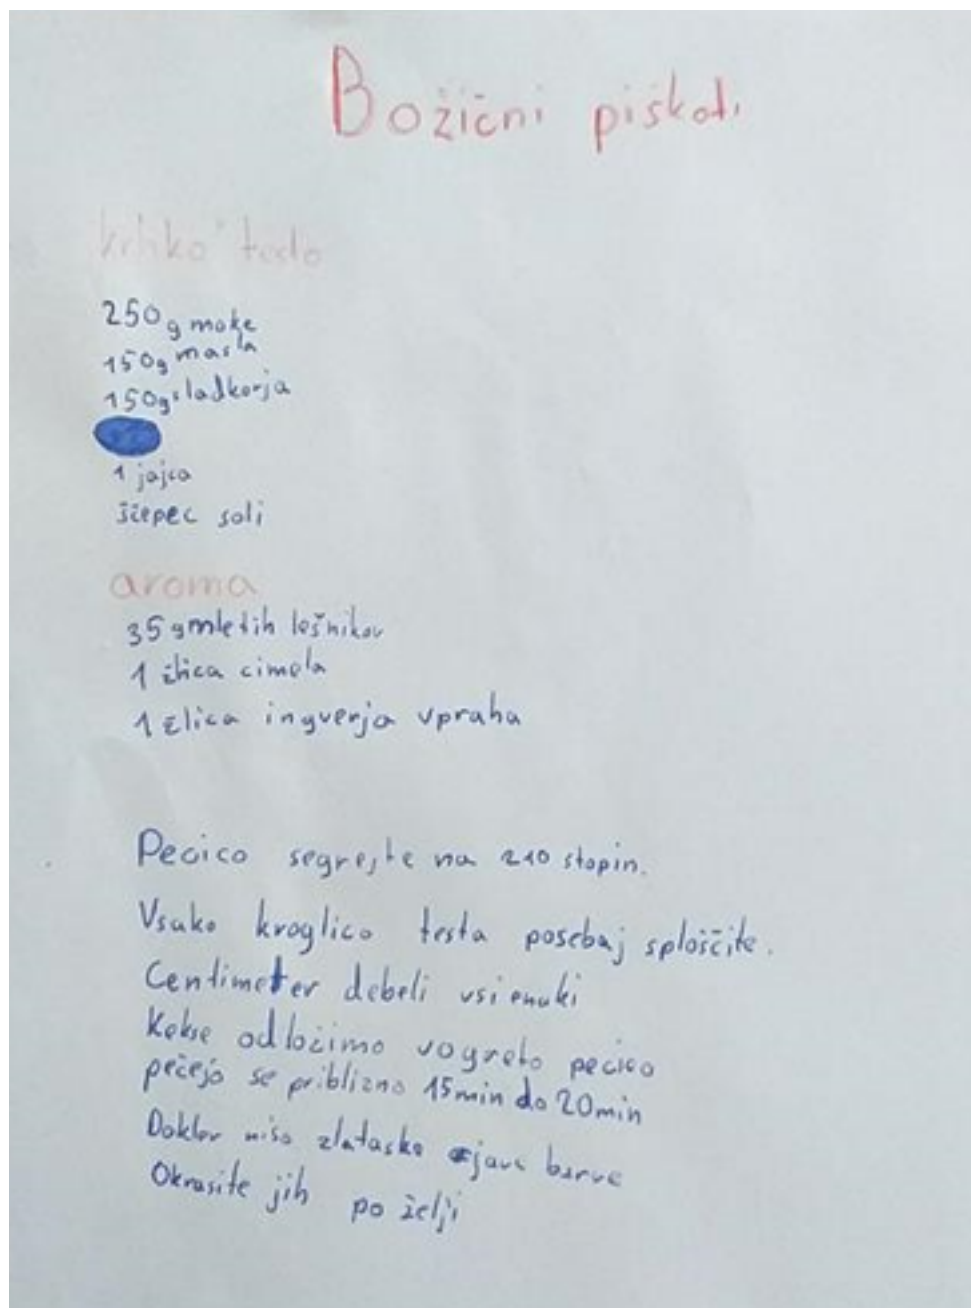 Božični piškoti
krhko testo
250g moke
150g masla
150g sladkorja
1 jajca
ščepec soli
aroma
35 g mletih lešnikov
1 žlica cimeta
1 žlica ingverja vpraha
Pečico segrejte na 210 stopin.
Vsako kroglico testa posebaj sploščite.
Centimeter debeli vsi enaki
Kekse odložimo vogreto pečico
pečejo se približno 15min do 20min
Dokler niso zlatasko rjave barve
Okrasite jih po želji